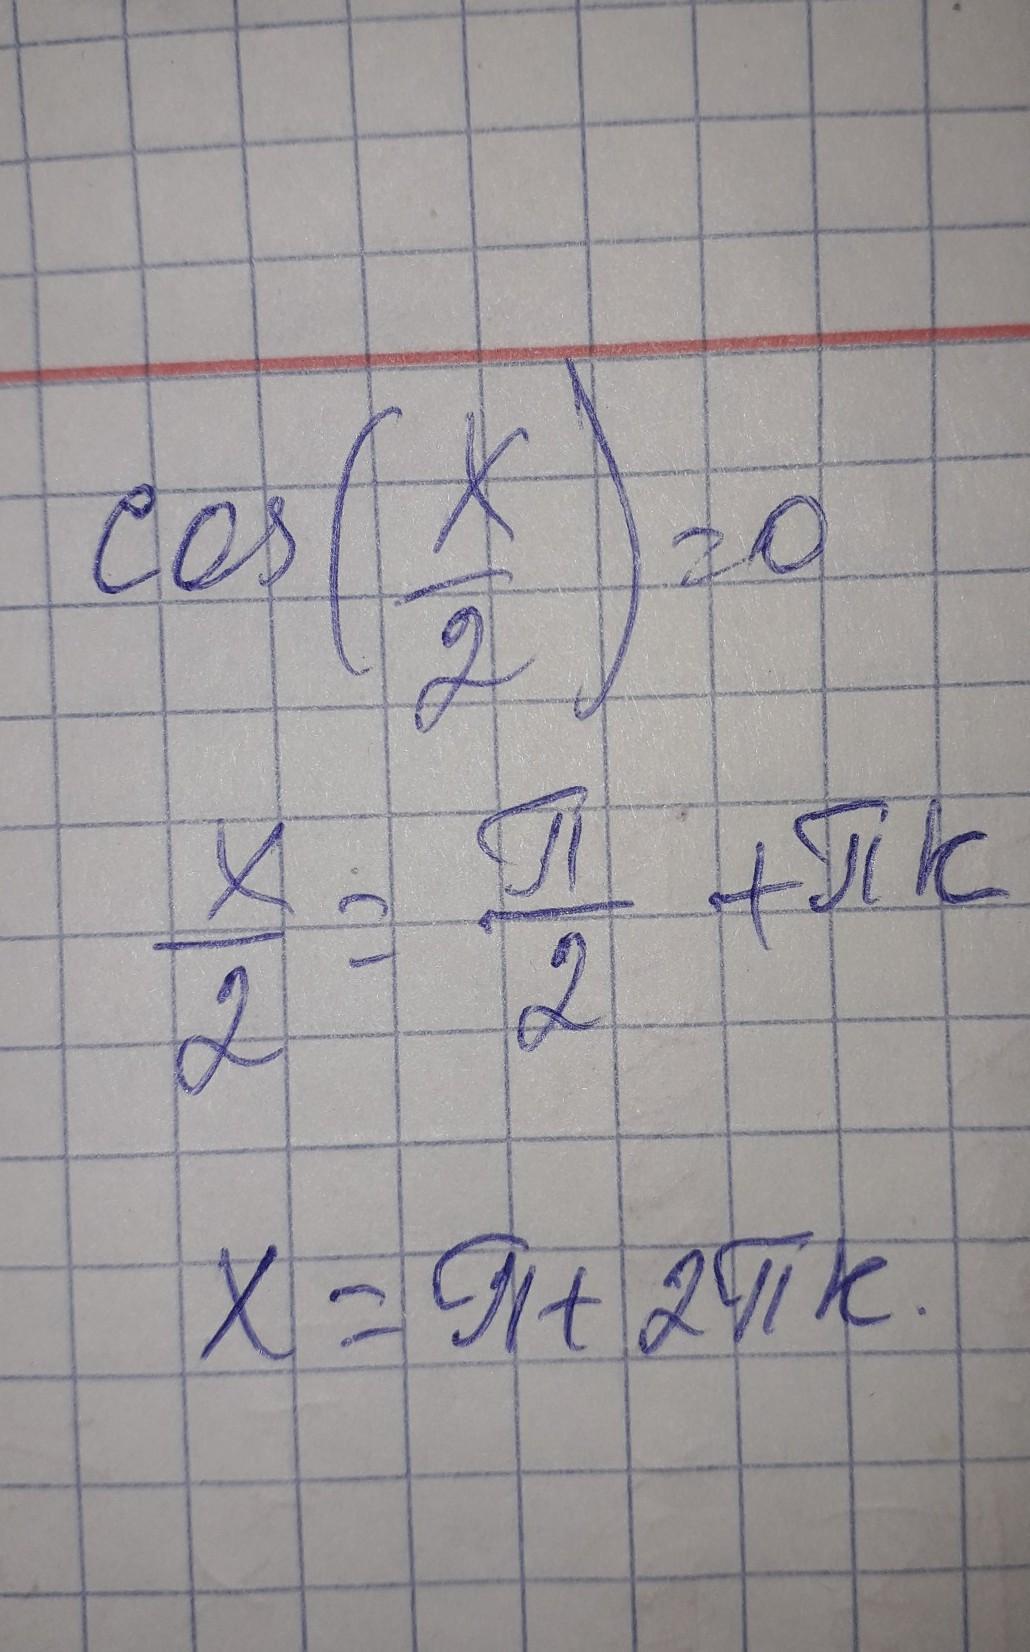 cos(x/2)=0
x/2 = π/2 + πk
x = π + 2πk.